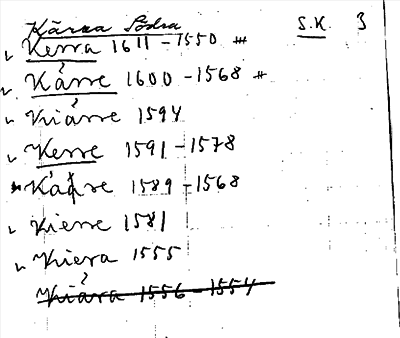 Kärra Södra S.K. 3
Kerra 1611-1550 #
Kårre 1600-1568 #
Kiärre 1594
Kerre 1591-1578
Kärre 1589-1568
Kierre 1581
Kierra 1555
Kiära 1556-1554